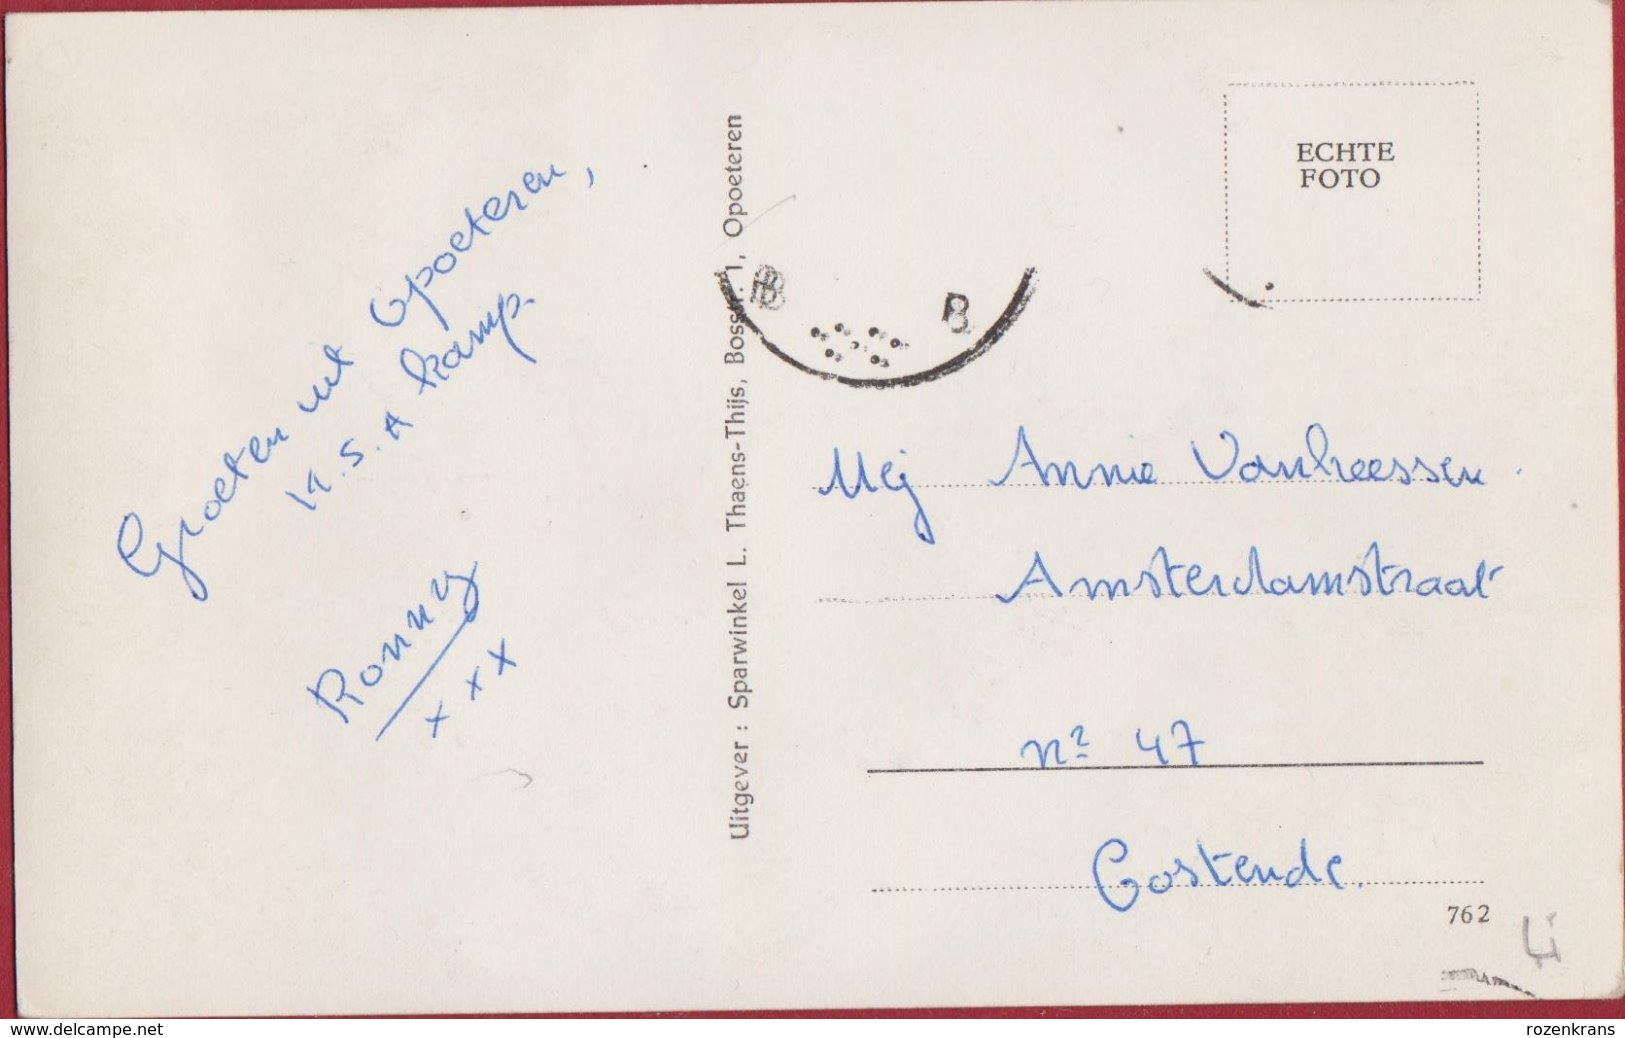 Groeten uit Opoeteren,
K.S.A kamp.
Ronny
x x x
Uitgever : Sparwinkel L. Thaens-Thijs, Bosstr. 1, Opoeteren
ECHTE
FOTO
B B
Mej Annie Vanheessen.
Amsterdamstraat
nº 47
Oostende.
762
Li
www.delcampe.net
rozenkrans